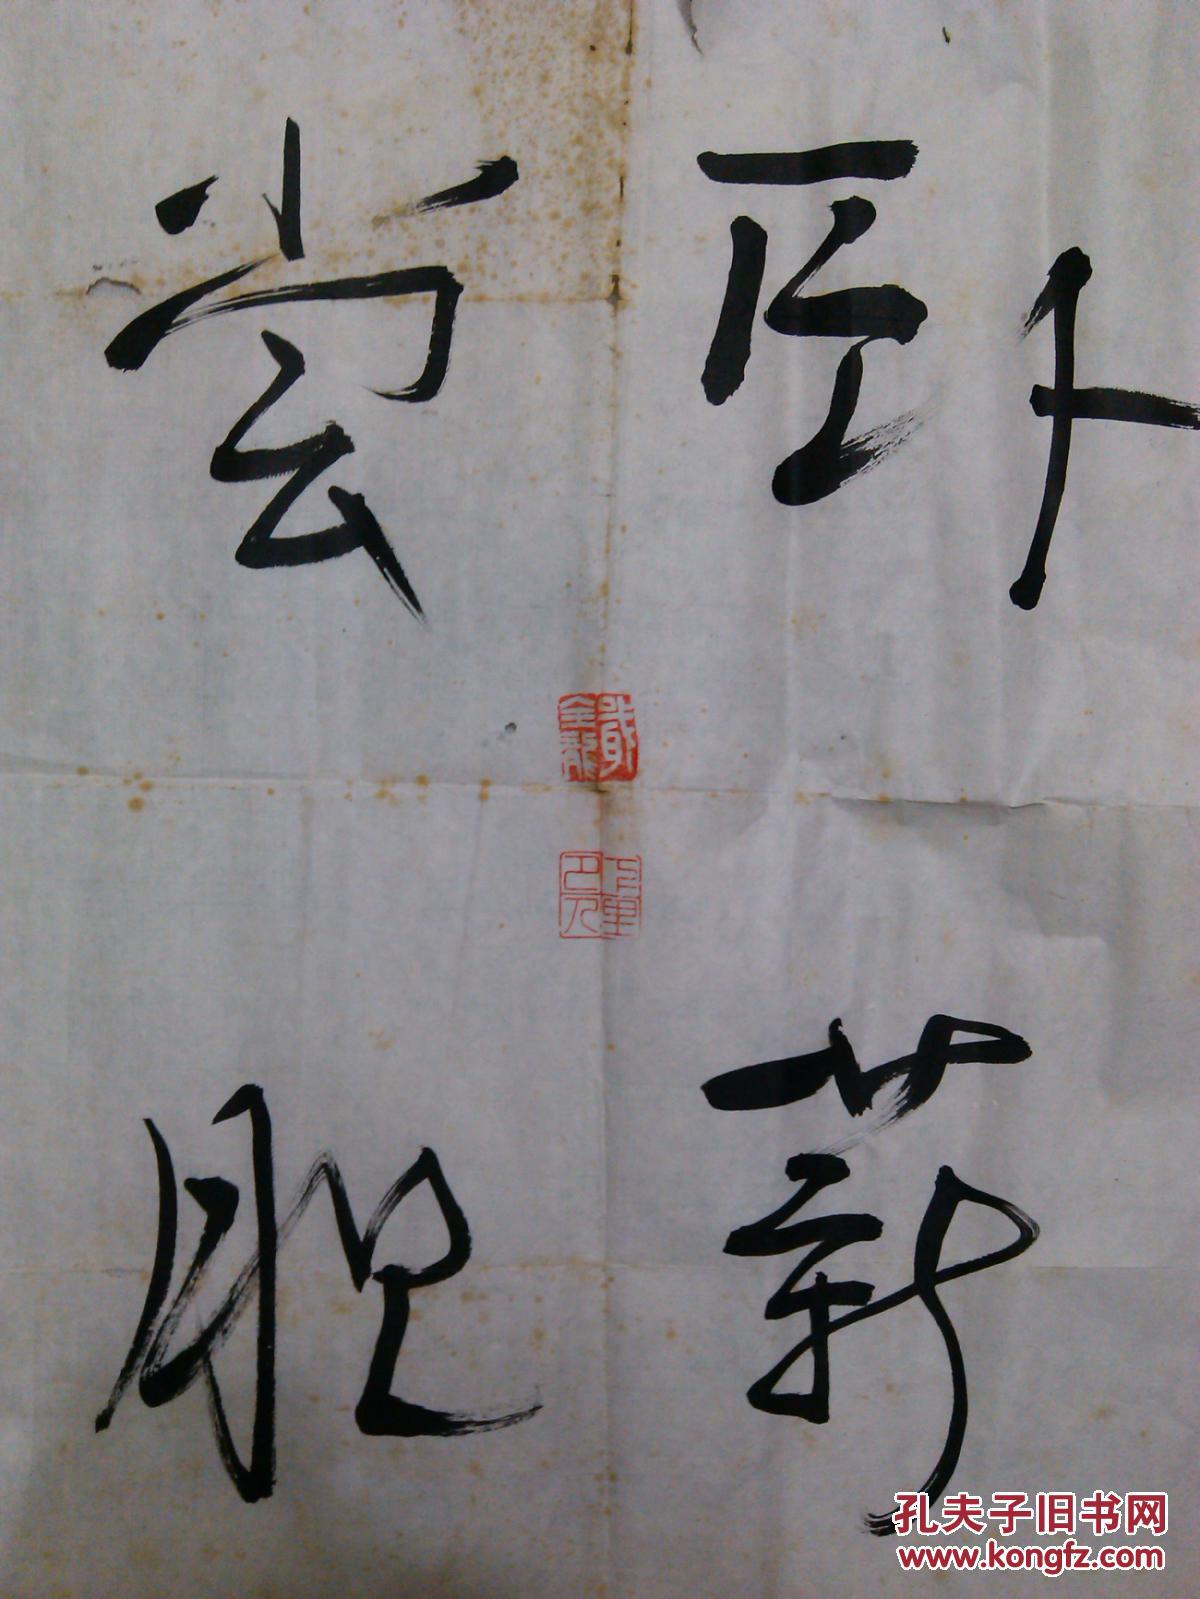 卧薪
尝胆
孔夫子旧书网
www.kongfz.com